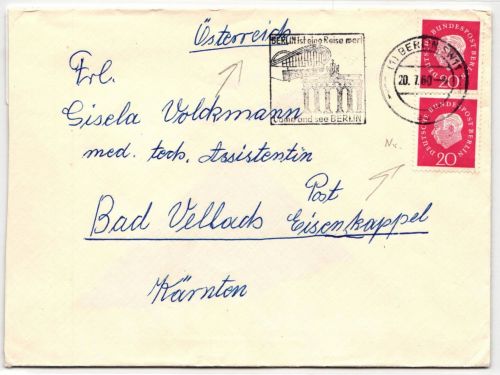 Österreich
BERLIN ist eine Reise wert
Come and see BERLIN
(1) BERLIN SW11
20.7.60
DEUTSCHE BUNDESPOST BERLIN
20
DEUTSCHE BUNDESPOST BERLIN
20
Frl.
Gisela Volckmann
med. tech. Assistentin
Post
Bad Vellach Eisenkappel
Kärnten